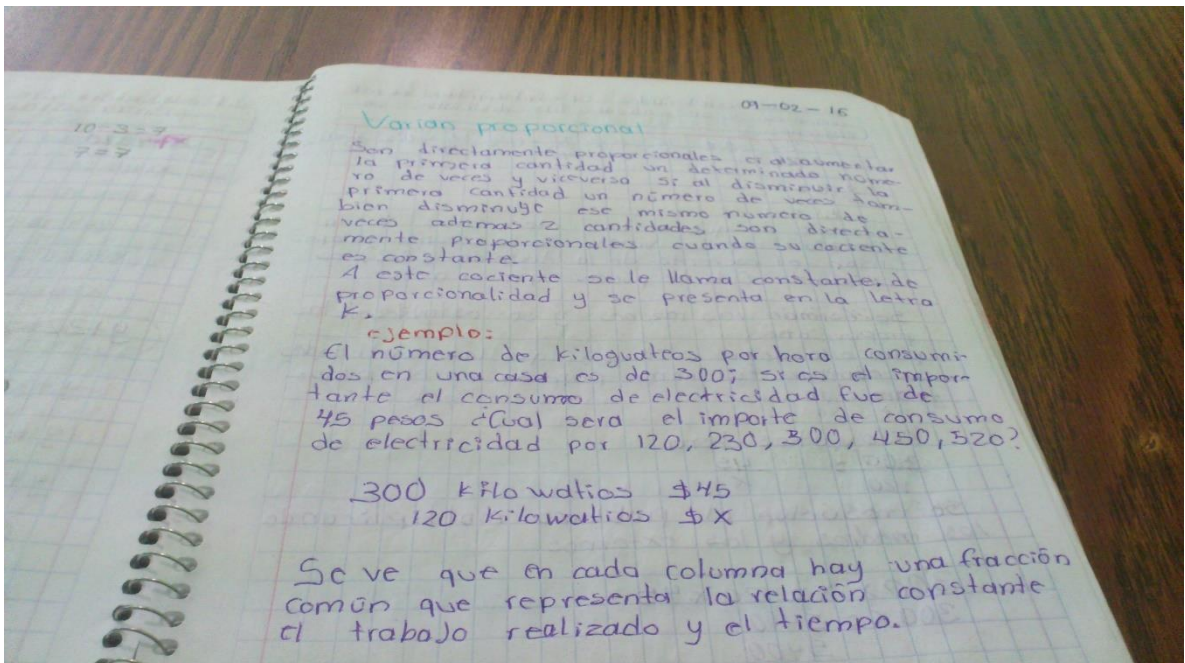 10-3=7
7=7
09-02-16
Varian proporcional
Son directamente proporcionales si al aumentar
la primera cantidad un determinado nume-
ro de veces y viceversa si al disminuir la
primera cantidad un número de veces tam-
bien disminuye ese mismo numero de
veces ademas 2 cantidades son directa-
mente proporcionales cuando su cociente
es constante.
A este cociente se le llama constante de
proporcionalidad y se presenta en la letra
K.
ejemplo:
El número de kiloguateos por hora consumi-
dos en una casa es de 300; si es el impor-
tante el consumo de electricidad fue de
45 pesos ¿Cual sera el importe de consumo
de electricidad por 120, 230, 300, 450, 520?
300 kilowatios $45
120 kilowatios $X
Se ve que en cada columna hay una fracción
común que representa la relación constante
el trabajo realizado y el tiempo.